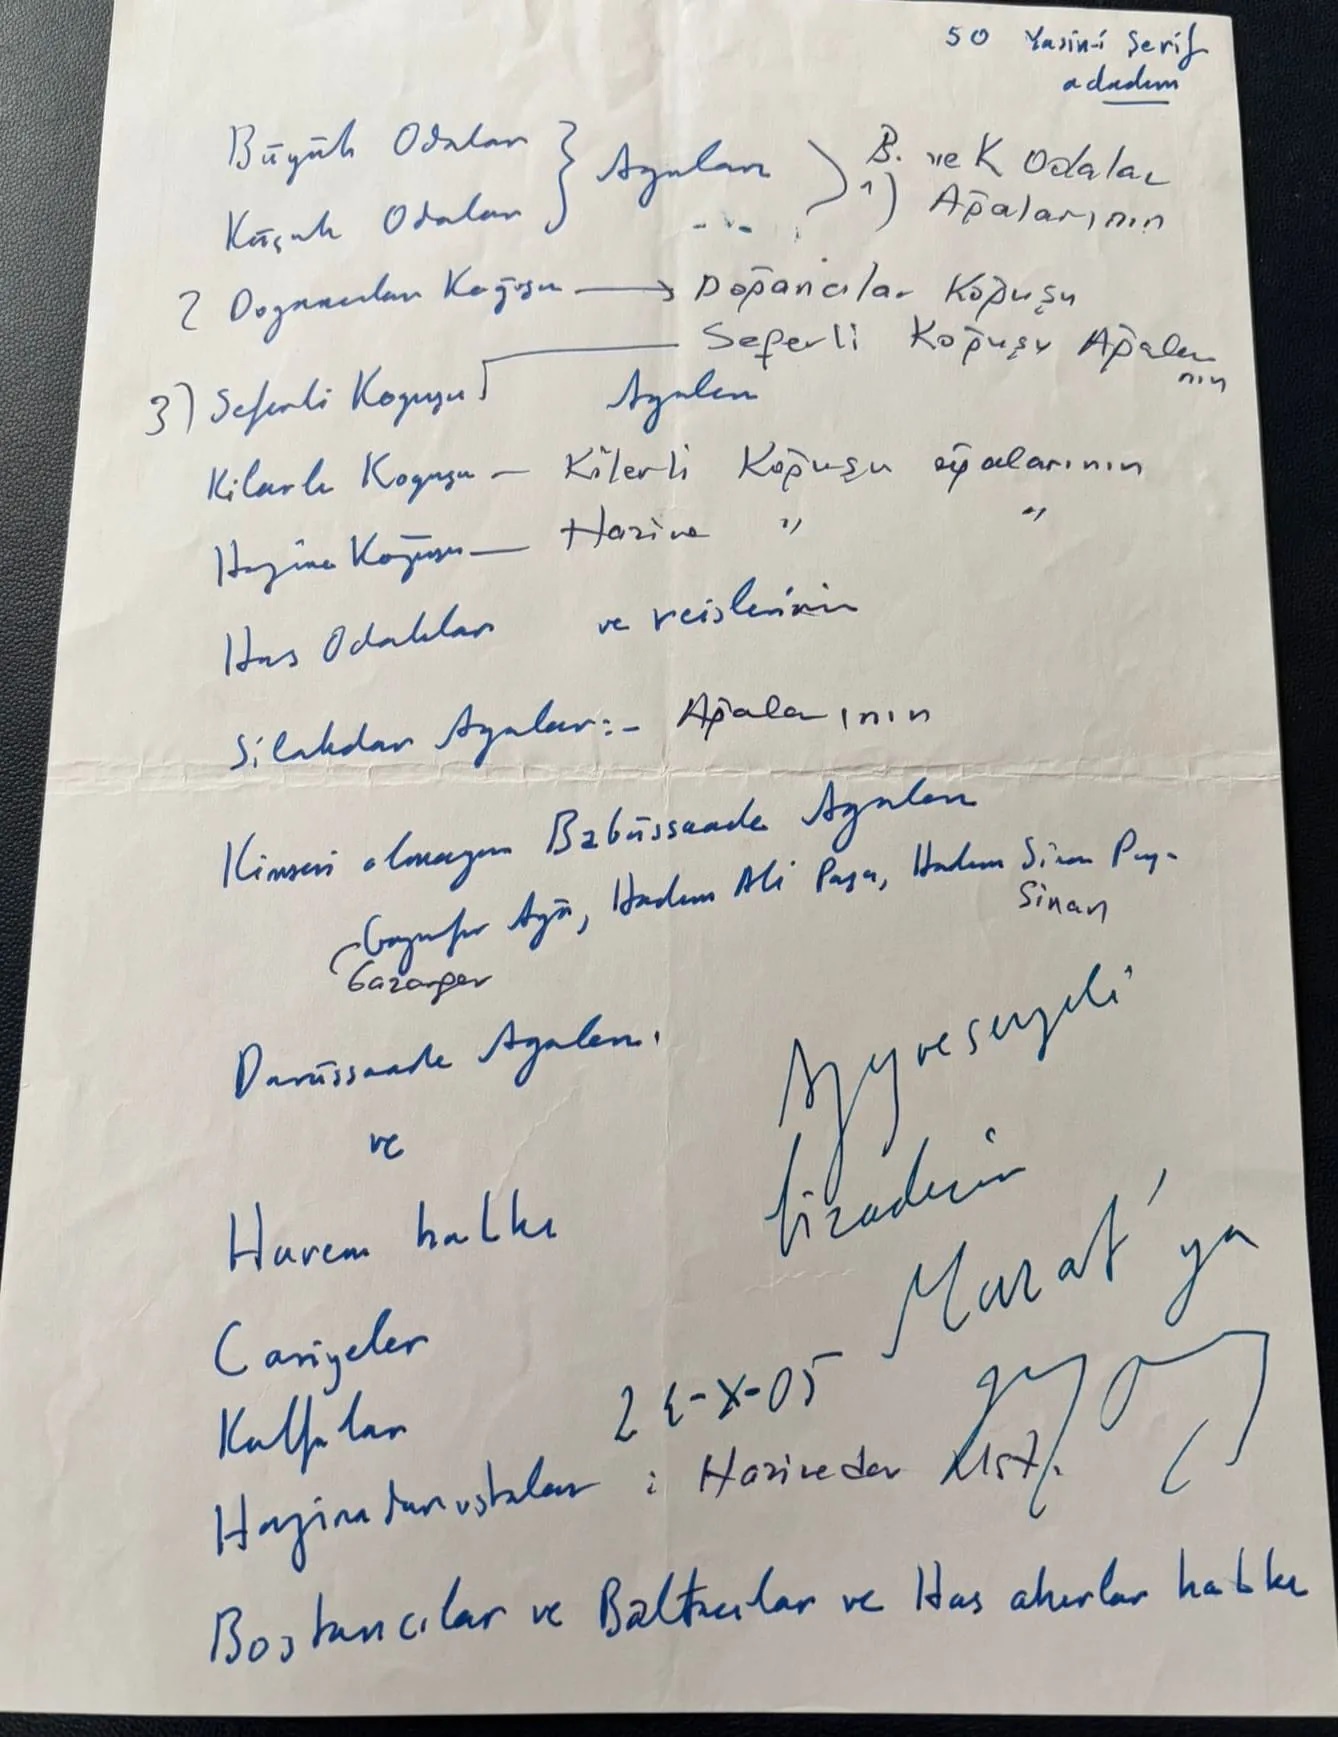 50 Yasin-i Şerif
adadım
Büyük Odalar } Ağaları ) B. ve K Odalar
Küçük Odaları 1) Ağalarının
2 Doğancılar Koğuşu → Doğancılar Koğuşu
Seferli Koğuşu Ağaları
nın
3) Seferli Koğuşu Ağaları
Kilerli Koğuşu — Kilerli Koğuşu ağalarının
Hazine Koğuşu — Hazine " "
Has Odalılar ve reislerinin
Silahdar Ağalar:- Ağalarının
Kimsesi olmayan Babüssaade Ağaları
Gazanfer Ağa, Hadım Ali Paşa, Hadım Sinan Paşa
Sinan
Gazanfer
Darüssaade Ağaları.
ve
Harem halkı
Cariyeler
Kalfalar
24-X-05
Hazinedar ustalar : Hazinedar Ust.
Bostancılar ve Baltacılar ve Has ahırlar halkı